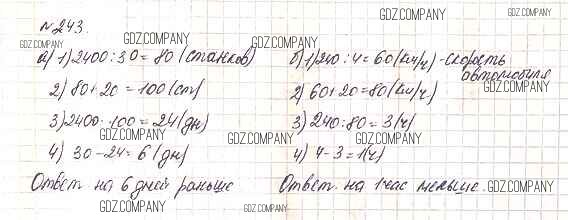 №243.
а) 1) 2400 : 30 = 80 (станков)
2) 80 + 20 = 100 (ст)
3) 2400 : 100 = 24 (дн)
4) 30 - 24 = 6 (дн)
Ответ на 6 дней раньше
б) 1) 240 : 4 = 60 (км/ч) - скорость
автомобиля
2) 60 + 20 = 80 (км/ч)
3) 240 : 80 = 3 (ч)
4) 4 - 3 = 1 (ч)
Ответ. на 1 час меньше.
GDZ.COMPANY
GDZ.COMPANY
GDZ.COMPANY
GDZ.COMPANY
GDZ.COMPANY
GDZ.COMPANY
GDZ.COMPANY
GDZ.COMPANY
GDZ.COMPANY
GDZ.COMPANY
GDZ.COMPANY
GDZ.COMPANY
GDZ.COMPANY